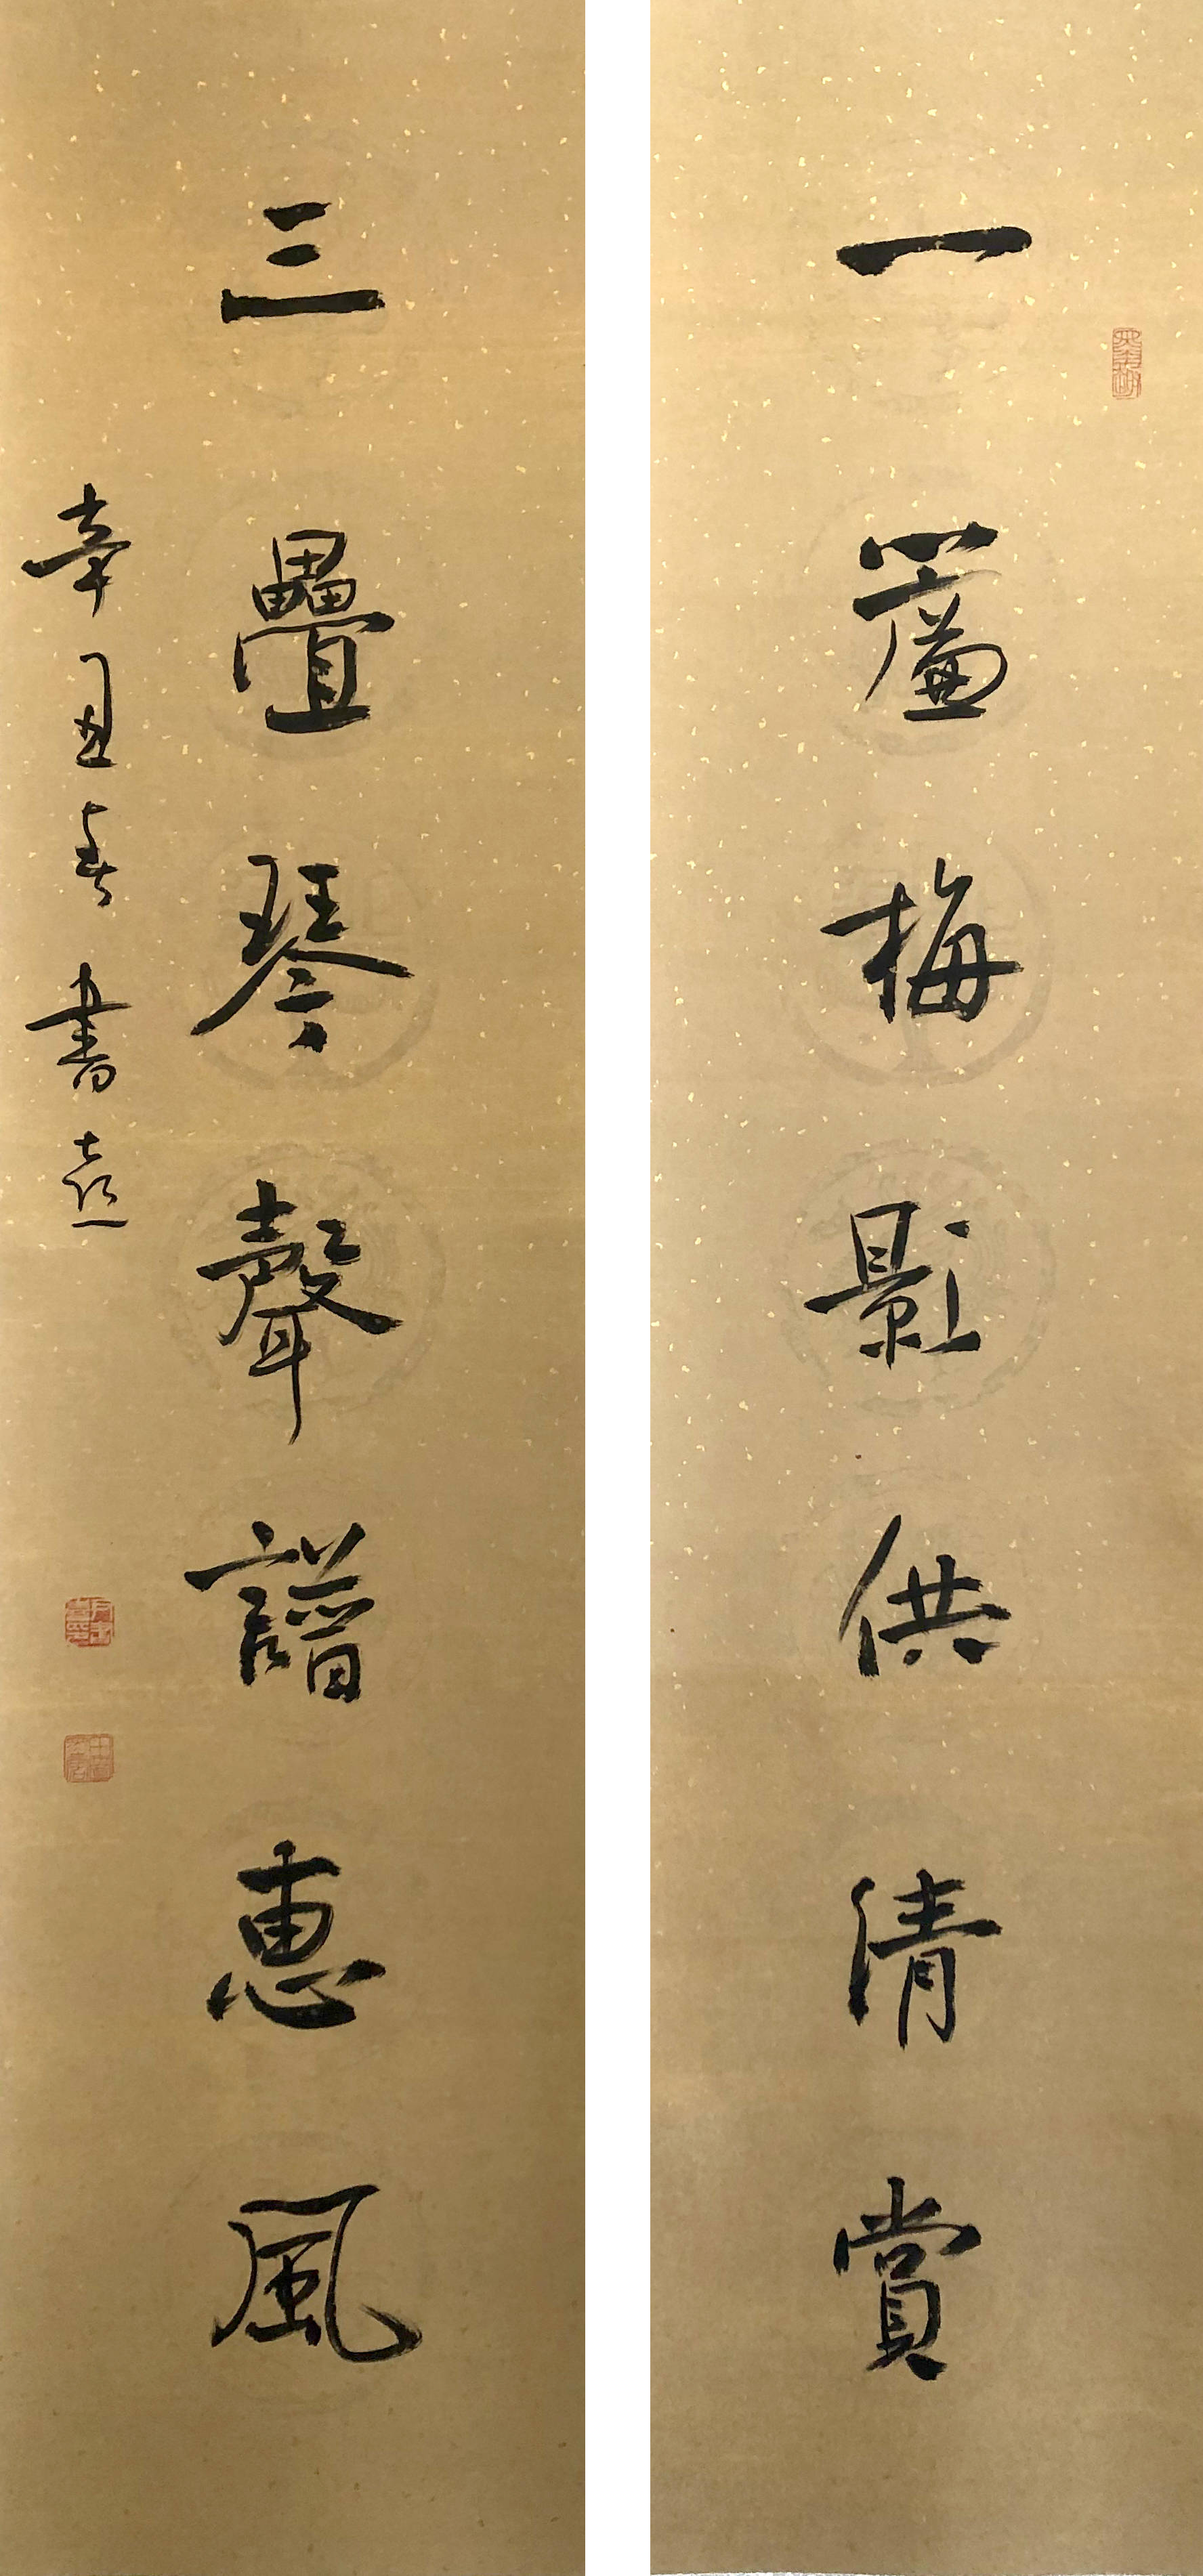 一簾梅影供清賞
三疊琴聲譜惠風
辛丑春書喜